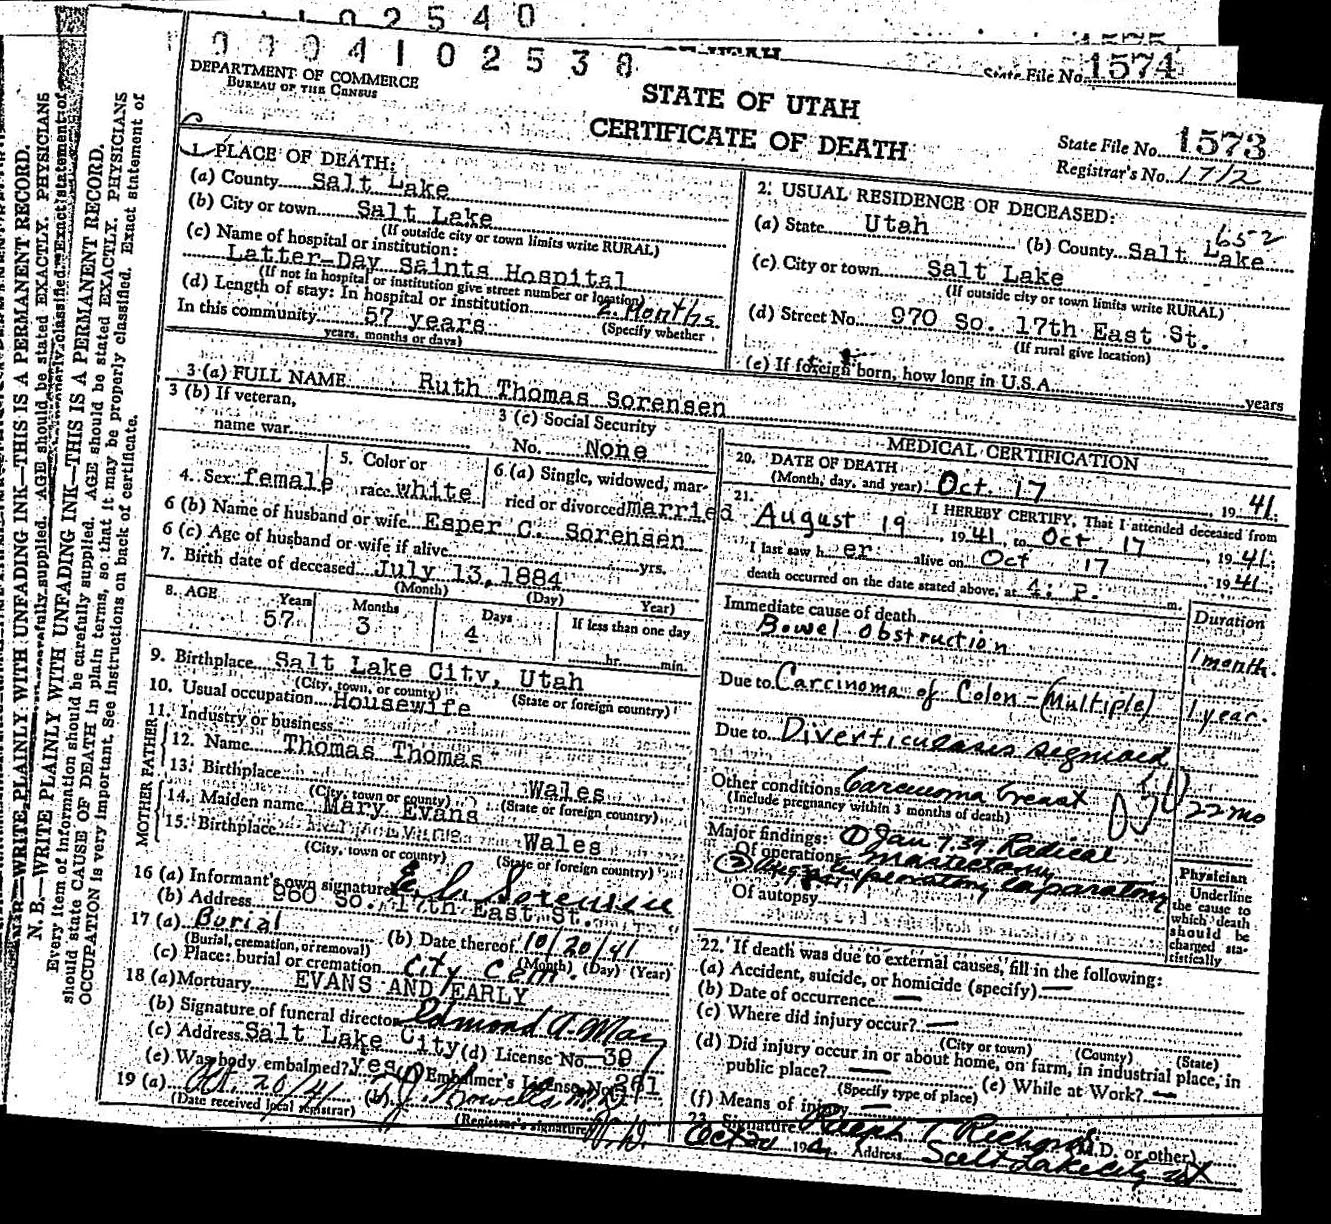 1 0 2 5 4 0
0 0 0 4 1 0 2 5 3 8
State File No. 1574
DEPARTMENT OF COMMERCE
BUREAU OF THE CENSUS
STATE OF UTAH
CERTIFICATE OF DEATH
State File No. 1573
Registrar's No. 1712
1. PLACE OF DEATH:
(a) County Salt Lake
(b) City or town Salt Lake
(If outside city or town limits write RURAL)
(c) Name of hospital or institution:
Latter-Day Saints Hospital
(If not in hospital or institution give street number or location)
(d) Length of stay: In hospital or institution 2 Months
(Specify whether
In this community 57 years
years, months or days)
2. USUAL RESIDENCE OF DECEASED:
652
(a) State Utah (b) County Salt Lake
(c) City or town Salt Lake
(If outside city or town limits write RURAL)
(d) Street No. 970 So. 17th East St.
(If rural give location)
(e) If foreign born, how long in U.S.A. years
3 (a) FULL NAME Ruth Thomas Sorensen
3 (b) If veteran,
name war
3 (c) Social Security
No. None
4. Sex female
5. Color or
race white
6 (a) Single, widowed, mar-
ried or divorced married
6 (b) Name of husband or wife Esper C. Sorensen
6 (c) Age of husband or wife if alive yrs.
7. Birth date of deceased July 13, 1884
(Month) (Day) Year)
8. AGE Years Months Days If less than one day
57 3 4 hr. min.
9. Birthplace Salt Lake City, Utah
(City, town, or county) (State or foreign country)
10. Usual occupation Housewife
11. Industry or business
FATHER
12. Name Thomas Thomas
13. Birthplace Wales
(City, town or county) (State or foreign country)
MOTHER
14. Maiden name Mary Evans
15. Birthplace Wales
(City, town or county) (State or foreign country)
16 (a) Informant's own signature E. C. Sorensen
(b) Address 960 So. 17th East St.
17 (a) Burial (b) Date thereof 10/20/41
(Burial, cremation, or removal) (Month) (Day) (Year)
(c) Place: burial or cremation City Cem.
18 (a) Mortuary EVANS AND EARLY
(b) Signature of funeral director Edmond A.
(c) Address Salt Lake City (d) License No. 39
(e) Was body embalmed? Yes (f) Embalmer's License No. 261
19 (a) Oct. 20/41 (b)
(Date received local registrar) (Registrar's signature)
MEDICAL CERTIFICATION
20. DATE OF DEATH
(Month, day, and year) Oct. 17 19 41.
21. I HEREBY CERTIFY, That I attended deceased from
August 19, 1941, to Oct. 17, 1941;
I last saw her alive on Oct 17, 1941;
death occurred on the date stated above, at 4: P. m.
Immediate cause of death Duration
Bowel obstruction 1 month.
Due to Carcinoma of Colon - (Multiple) 1 year.
Due to Diverticulosis sigmoid
Other conditions Carcinoma breast 22 mo
(Include pregnancy within 3 months of death)
Major findings: ① Jan 7, 39 Radical
Of operations Mastectomy
② exploratory laparatomy
Of autopsy
Physician
Underline
the cause to
which death
should be
charged sta-
tistically
22. If death was due to external causes, fill in the following:
(a) Accident, suicide, or homicide (specify) —
(b) Date of occurrence —
(c) Where did injury occur? —
(City or town) (County) (State)
(d) Did injury occur in or about home, on farm, in industrial place, in
public place? — (e) While at Work? —
(Specify type of place)
(f) Means of injury —
23. Signature Ralph T. Richards (M.D. or other)
Oct 20 1941 Address Salt Lake City Ut
N. B.—WRITE PLAINLY WITH UNFADING INK—THIS IS A PERMANENT RECORD.
Every item of information should be carefully supplied. AGE should be stated EXACTLY. PHYSICIANS
should state CAUSE OF DEATH in plain terms, so that it may be properly classified. Exact statement of
OCCUPATION is very important. See instructions on back of certificate.